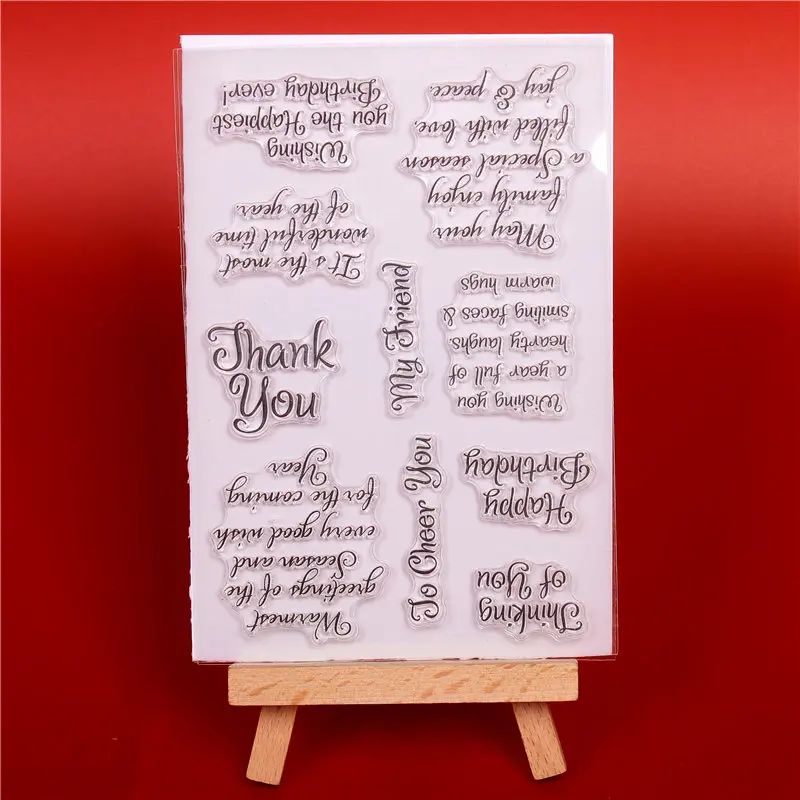 Wishing
you the Happiest
Birthday ever!
May your
family enjoy
a Special season
filled with love,
joy & peace.
It's the most
wonderful time
of the year.
My Friend
Wishing you
a year full of
hearty laughs
smiling faces &
warm hugs
Thank
You
Warmest
greetings of the
Season and
every good wish
for the coming
Year
To Cheer You
Happy
Birthday
Thinking
of You